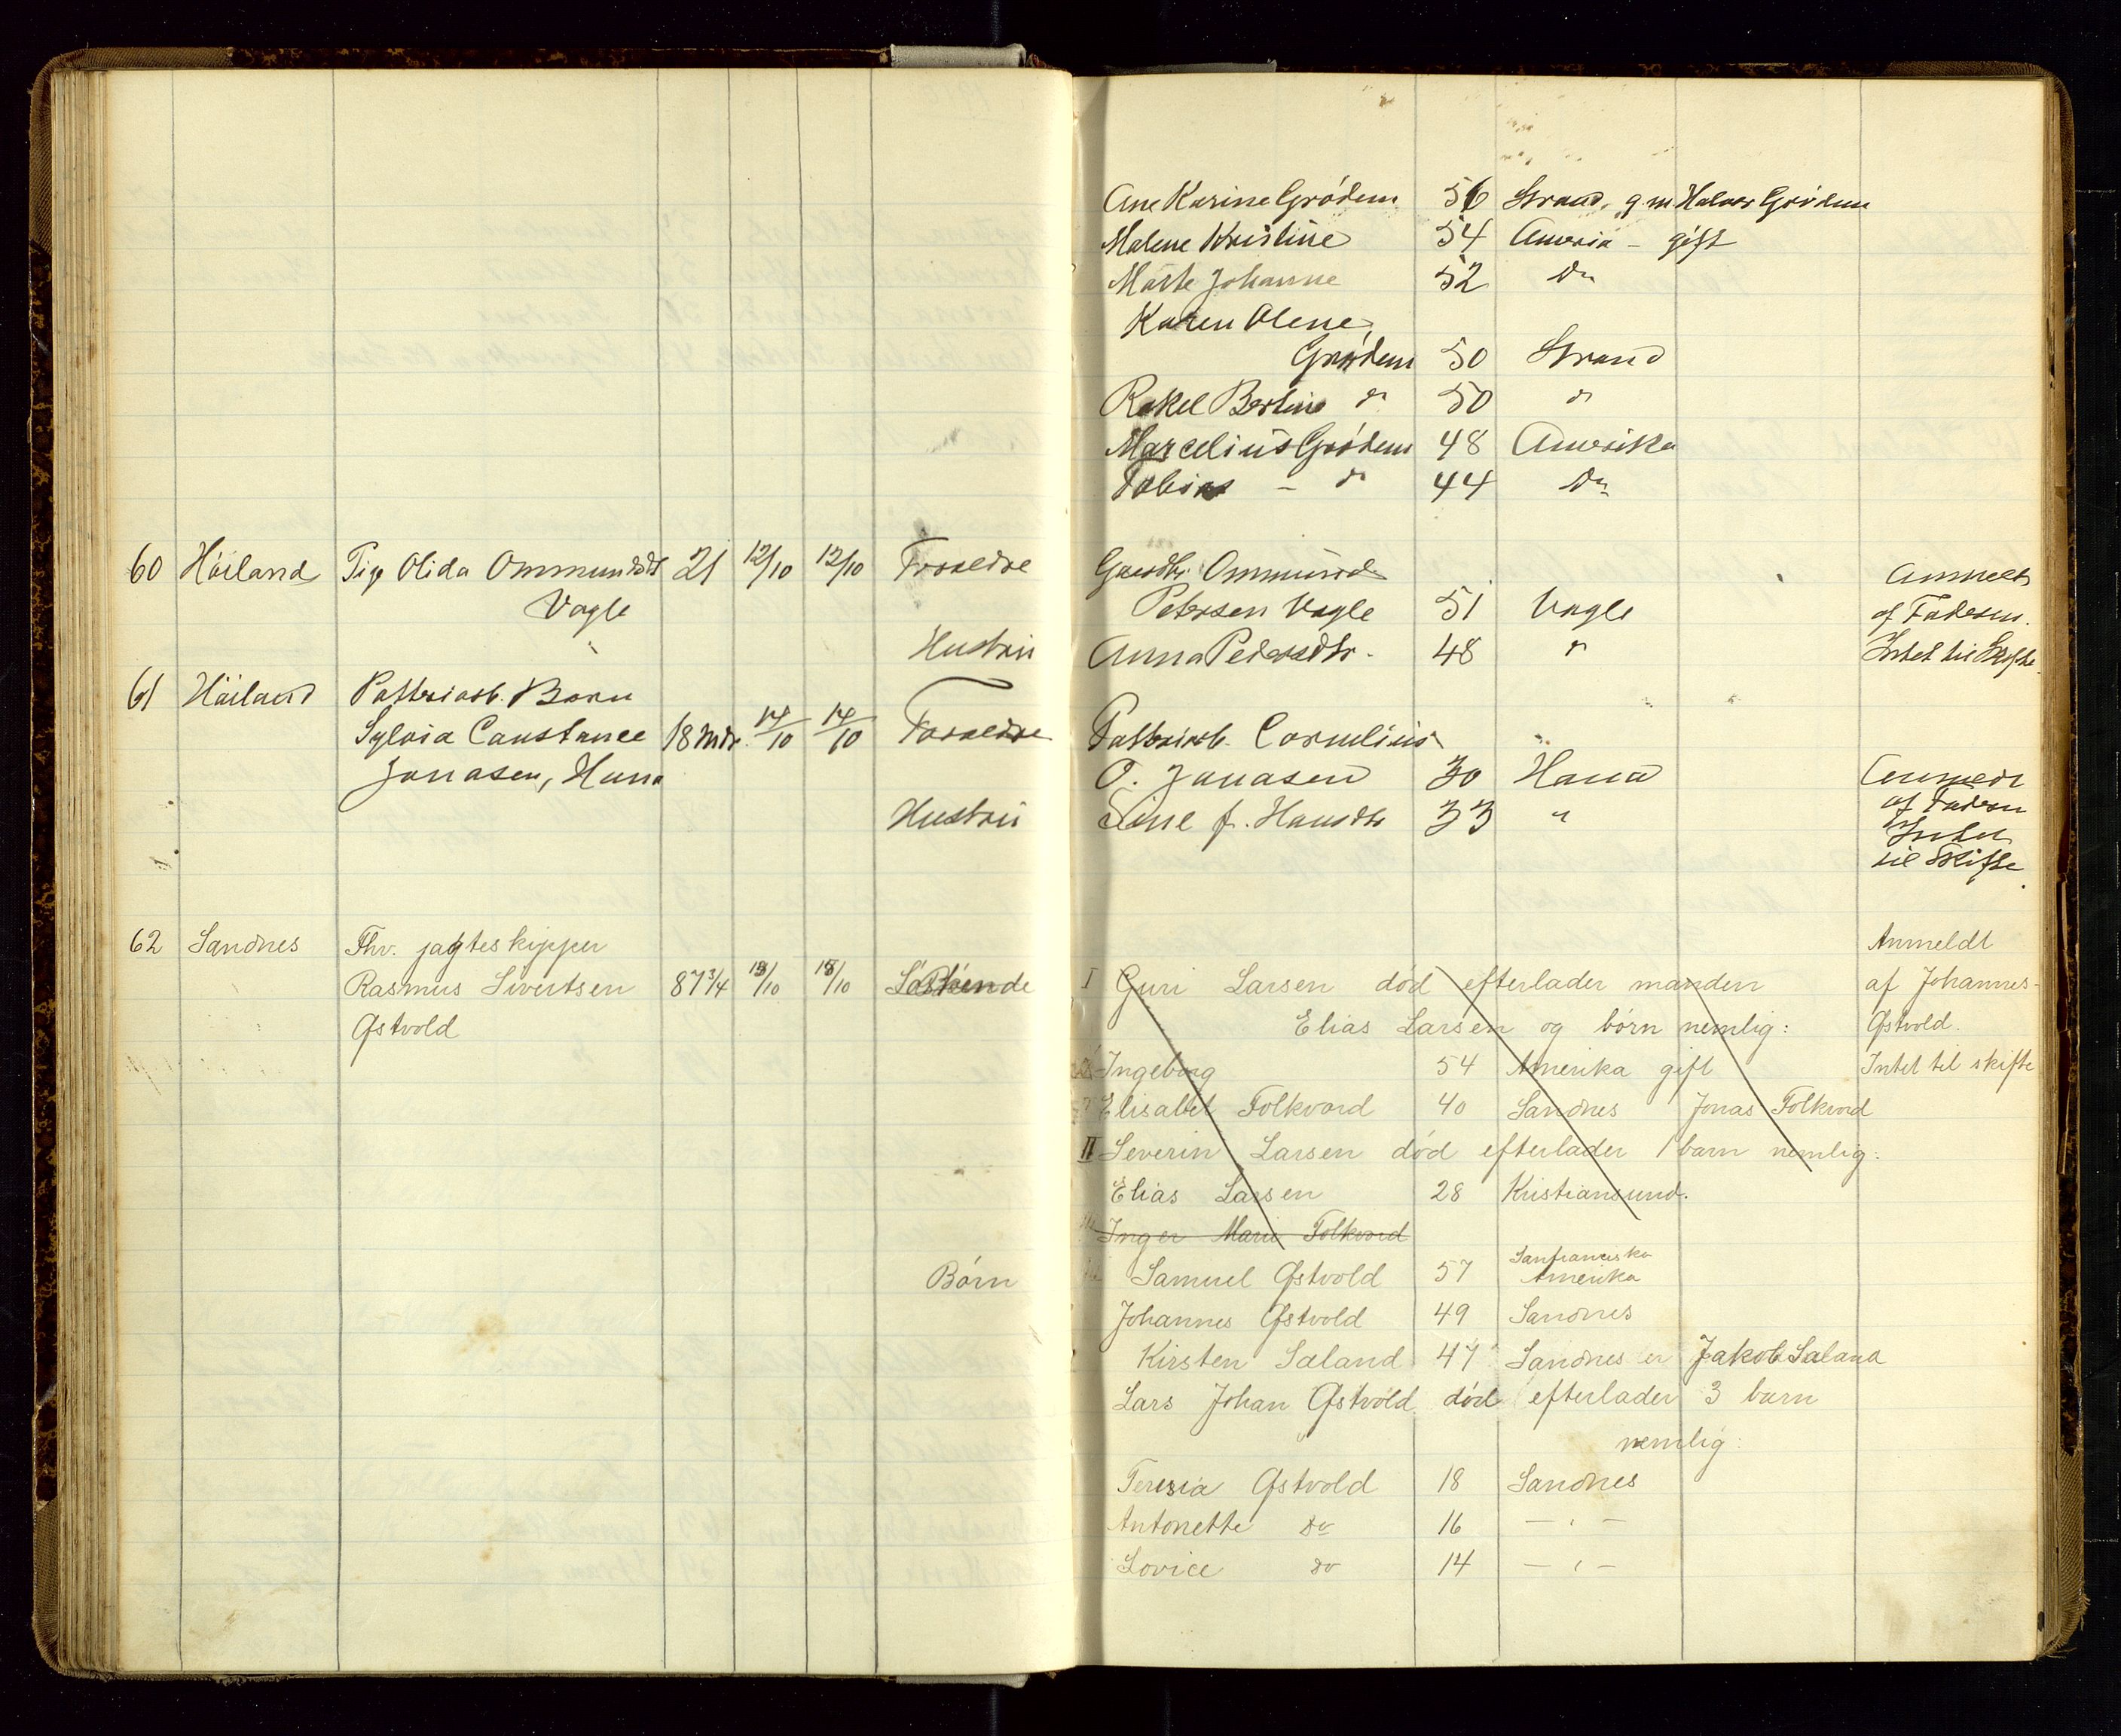 Ane Karine Grödem 56 Strand, g. m Halvor Grödem
Malene Kristine 54 Ameria - gift
Marte Johanne 52 Do
Karen Olene,
Grødem 50 Strand
Rakel Bertine do 50 do
Marcelius Grödem 48 Amerika
Tobias - do 44 Do
60 Höiland Pige Olida Ommundsdt 21 12/10 12/10 Forældre Gaardbr. Ommund Anmeldt
Vagle Petersen Vagle 51 Vagle af Faderen.
Hustru Anna Pedersdtr. 48 " Intet til Skifte.
61 Höiland Fabrikarb. Barn
Sylvia Constance 18 Mdr. 14/10 14/10 Forældre Fabrikarb. Cornelius
Jonasen, Hana O. Jonasen 30 Hana Anmeldt
Hustru Sine f. Hansdtr 33 " af Faderen
Intet
til Skifte
62 Sandnes Fhv. jagteskipper Anmeldt
Rasmus Sivertsen 87 3/4 /10 /10 Söskende I Guri Larsen död efterlader manden af Johannes
Østvold Elias Larsen og börn nemlig: Østvold.
Ingeborg 54 Amerika gift Intet til skifte
Elisabet Folkvord 40 Sandnes Jonas Folkvord
II Severin Larsen död efterlader 1 barn nemlig:
Elias Larsen 28 Kristiansund.
Inger Marie Folkvord
Sanfranciska
Börn Samuel Østvold 57 Amerika
Johannes Østvold 49 Sandnes
Kirsten Sæland 47 Sandnes er Jakob Sæland
Lars Johan Østvold död efterlader 3 barn
nemlig:
Teresia Østvold 18 Sandnes
Antonette do 16 - " -
Lovice do 14 - " -